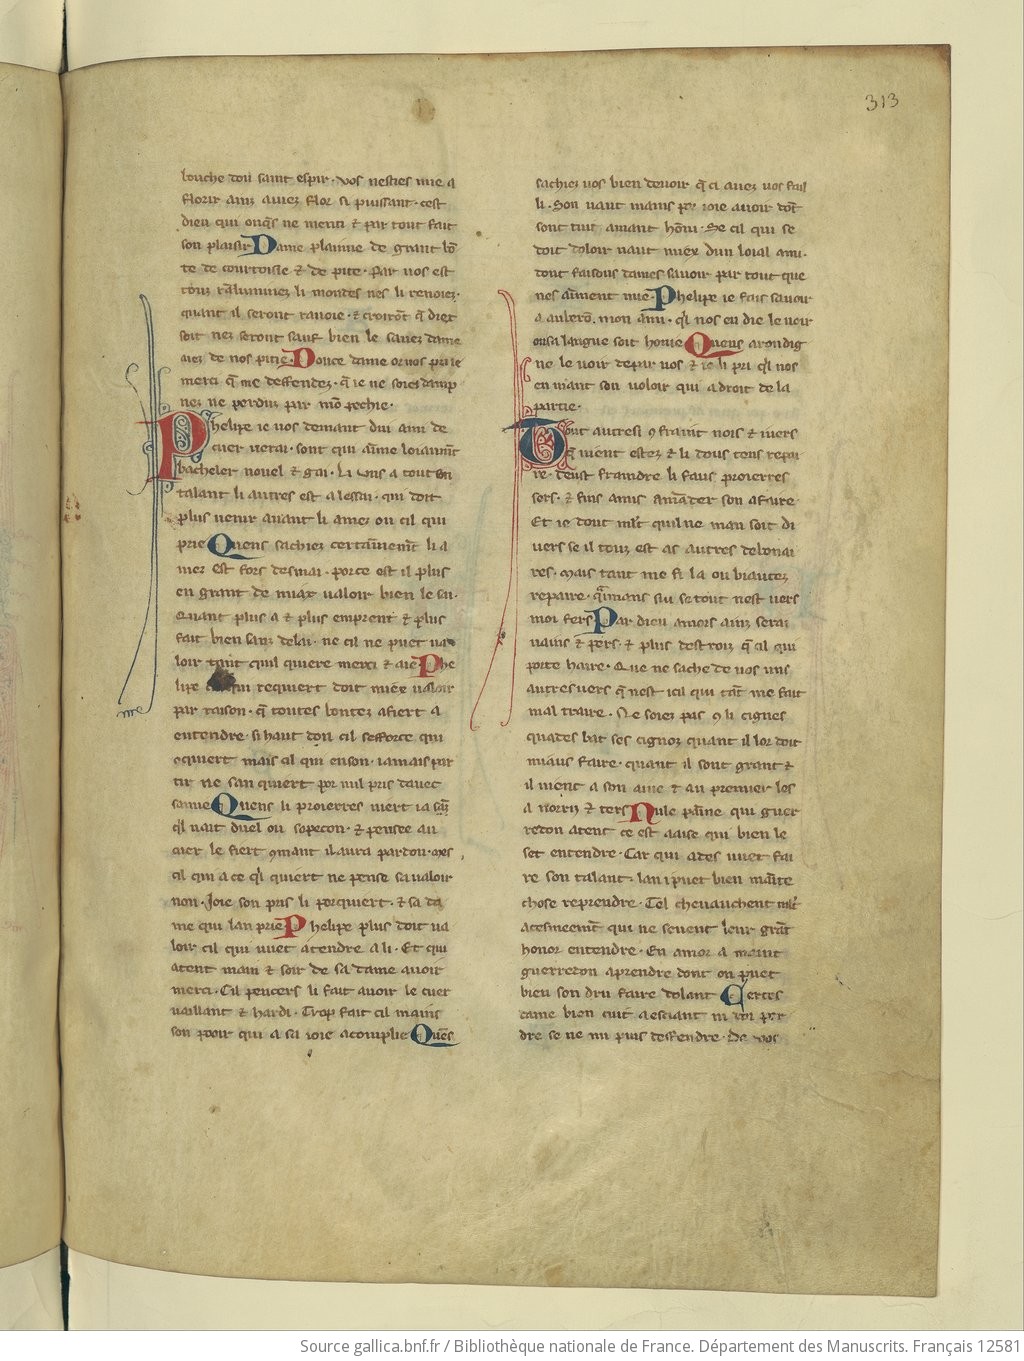 313
louche dou saint espir. vos nesties mie a
florir ainz aviez flor si puissant. cest
dieu qui onqs ne menti & par tout fait
son plaisir Dame plainne de grant bō
te de courtoisie & de pite. Par vos est
touz ralluminez li mondes nes li renoiez.
quant il seront ravoie. & croirōt q̄ diex
soit nez seront sauf bien le savez dame
aiez de nos pitie. Douce dame or vos pri ie
merci q̄ me deffendez. q̄ ie ne soiez damp
nez ne perduz par mō pechie.
Phelipe ie vos demant dui ami de
cuer verai. sont qui aīme loiaumt
bacheler novel & gai. Li uns a tout son
talant li autres est a lessai. qui doit
plus venir avant li amez ou cil qui
prie Quens sachiez certainnemt li a
mez est fors desmai. porce est il plus
en grant de miax valoir bien le sai.
Quant plus a & plus emprent & plus
fait bien sanz delai. ne cil ne puet va
loir tant quil quiere merci & aie Phe
lipe cil qui requiert doit miex valoir
par raison. q̄ toutes bontez afiert a
entendre. si haut don cil sefforce qui
requiert mais cil qui enson. iamais par
tir ne san quiert por mil pris davec
samie Quens li proierres niert ia sāz
q̄l nait duel ou sopecon. & pensee au
cuer le fiert 9mant il aura pardon. mes
cil qui a ce q̄l quiert ne pense sa valoir
non. Joie son pris li porquiert. & sa da
me qui lan prie Phelipe plus doit va
loir cil qui vuet atendre a li. Et qui
atent main & soir de sa dame avoir
merci. Cil pencers li fait avoir le cuer
vaillant & hardi. Trop fait cil mains
son pooir qui a sa ioie acomplie Quēs
sachiez vos bien devoir q̄ ci avez vos fail
li. Son vaut mains por ioie avoir dōt
sont tuit amant honi. Se cil qui se
doit doloir vaut miex dun loial ami.
dont faisons dames savoir par tout que
nes aiment mie. Phelipe ie fais savoir
a auberō. mon ami. q̄l nos en die le voir
ou sa langue soit honie Quens arondig
ne le voir depar vos & ie li pri q̄l nos
en mant son voloir qui a droit de la
partie.
Tout autresi 9 fraint nois & ivers
q̄ vient estez & li dous tens repai
re. deust fraindre li faus proierres
sors. & fins amis amāder son afaire
Et ie dout mlt quil ne man soit di
vers se il touz est as autres debonai
res. Mais tant me fi la ou biautez
repaire. q̄ mans sui se tout nest vers
moi fers Par dieu amors ainz serai
vains & pers. & plus destroiz q̄ cil qui
porte haire. Que ne sache de vos uns
autres vers q̄ nest icil qui tāt me fait
mal traire. Ne soiez pas 9 li cignes
quades bat ses cignoz quant il lor doit
miaus faire. quant il sont grant &
il vient a son aire & au premier les
a norriz & ters Nule painne qui guer
redon atent ce est aaise qui bien le
set entendre. Car qui ades vuet fai
re son talant. lan i puet bien mainte
chose reprendre. Tel chevauchent mlt
acesmeemt qui ne sevent leur grāt
honor entendre. En amor a maint
guerredon aprendre dont on puet
bien son dru faire dolant Certes
dame bien cuit a esciant
dre se ne mi puis deffendre. De vos
me
Source gallica.bnf.fr / Bibliothèque nationale de France. Département des Manuscrits. Français 12581